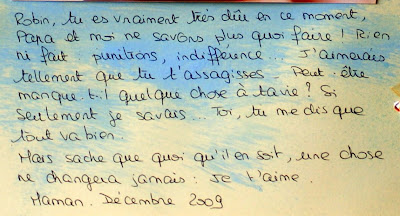 Robin, tu es vraiment très dur en ce moment,
Papa et moi ne savons plus quoi faire ! Rien
ni fait punitions, indifférence... J'aimerais
tellement que tu t'assagisses. Peut-être
manque-t-il quelque chose à ta vie ? Si
seulement je savais... Toi, tu me dis que
tout va bien.
Mais sache que quoi qu'il en soit, une chose
ne changera jamais : Je t'aime.
Maman. Décembre 2009